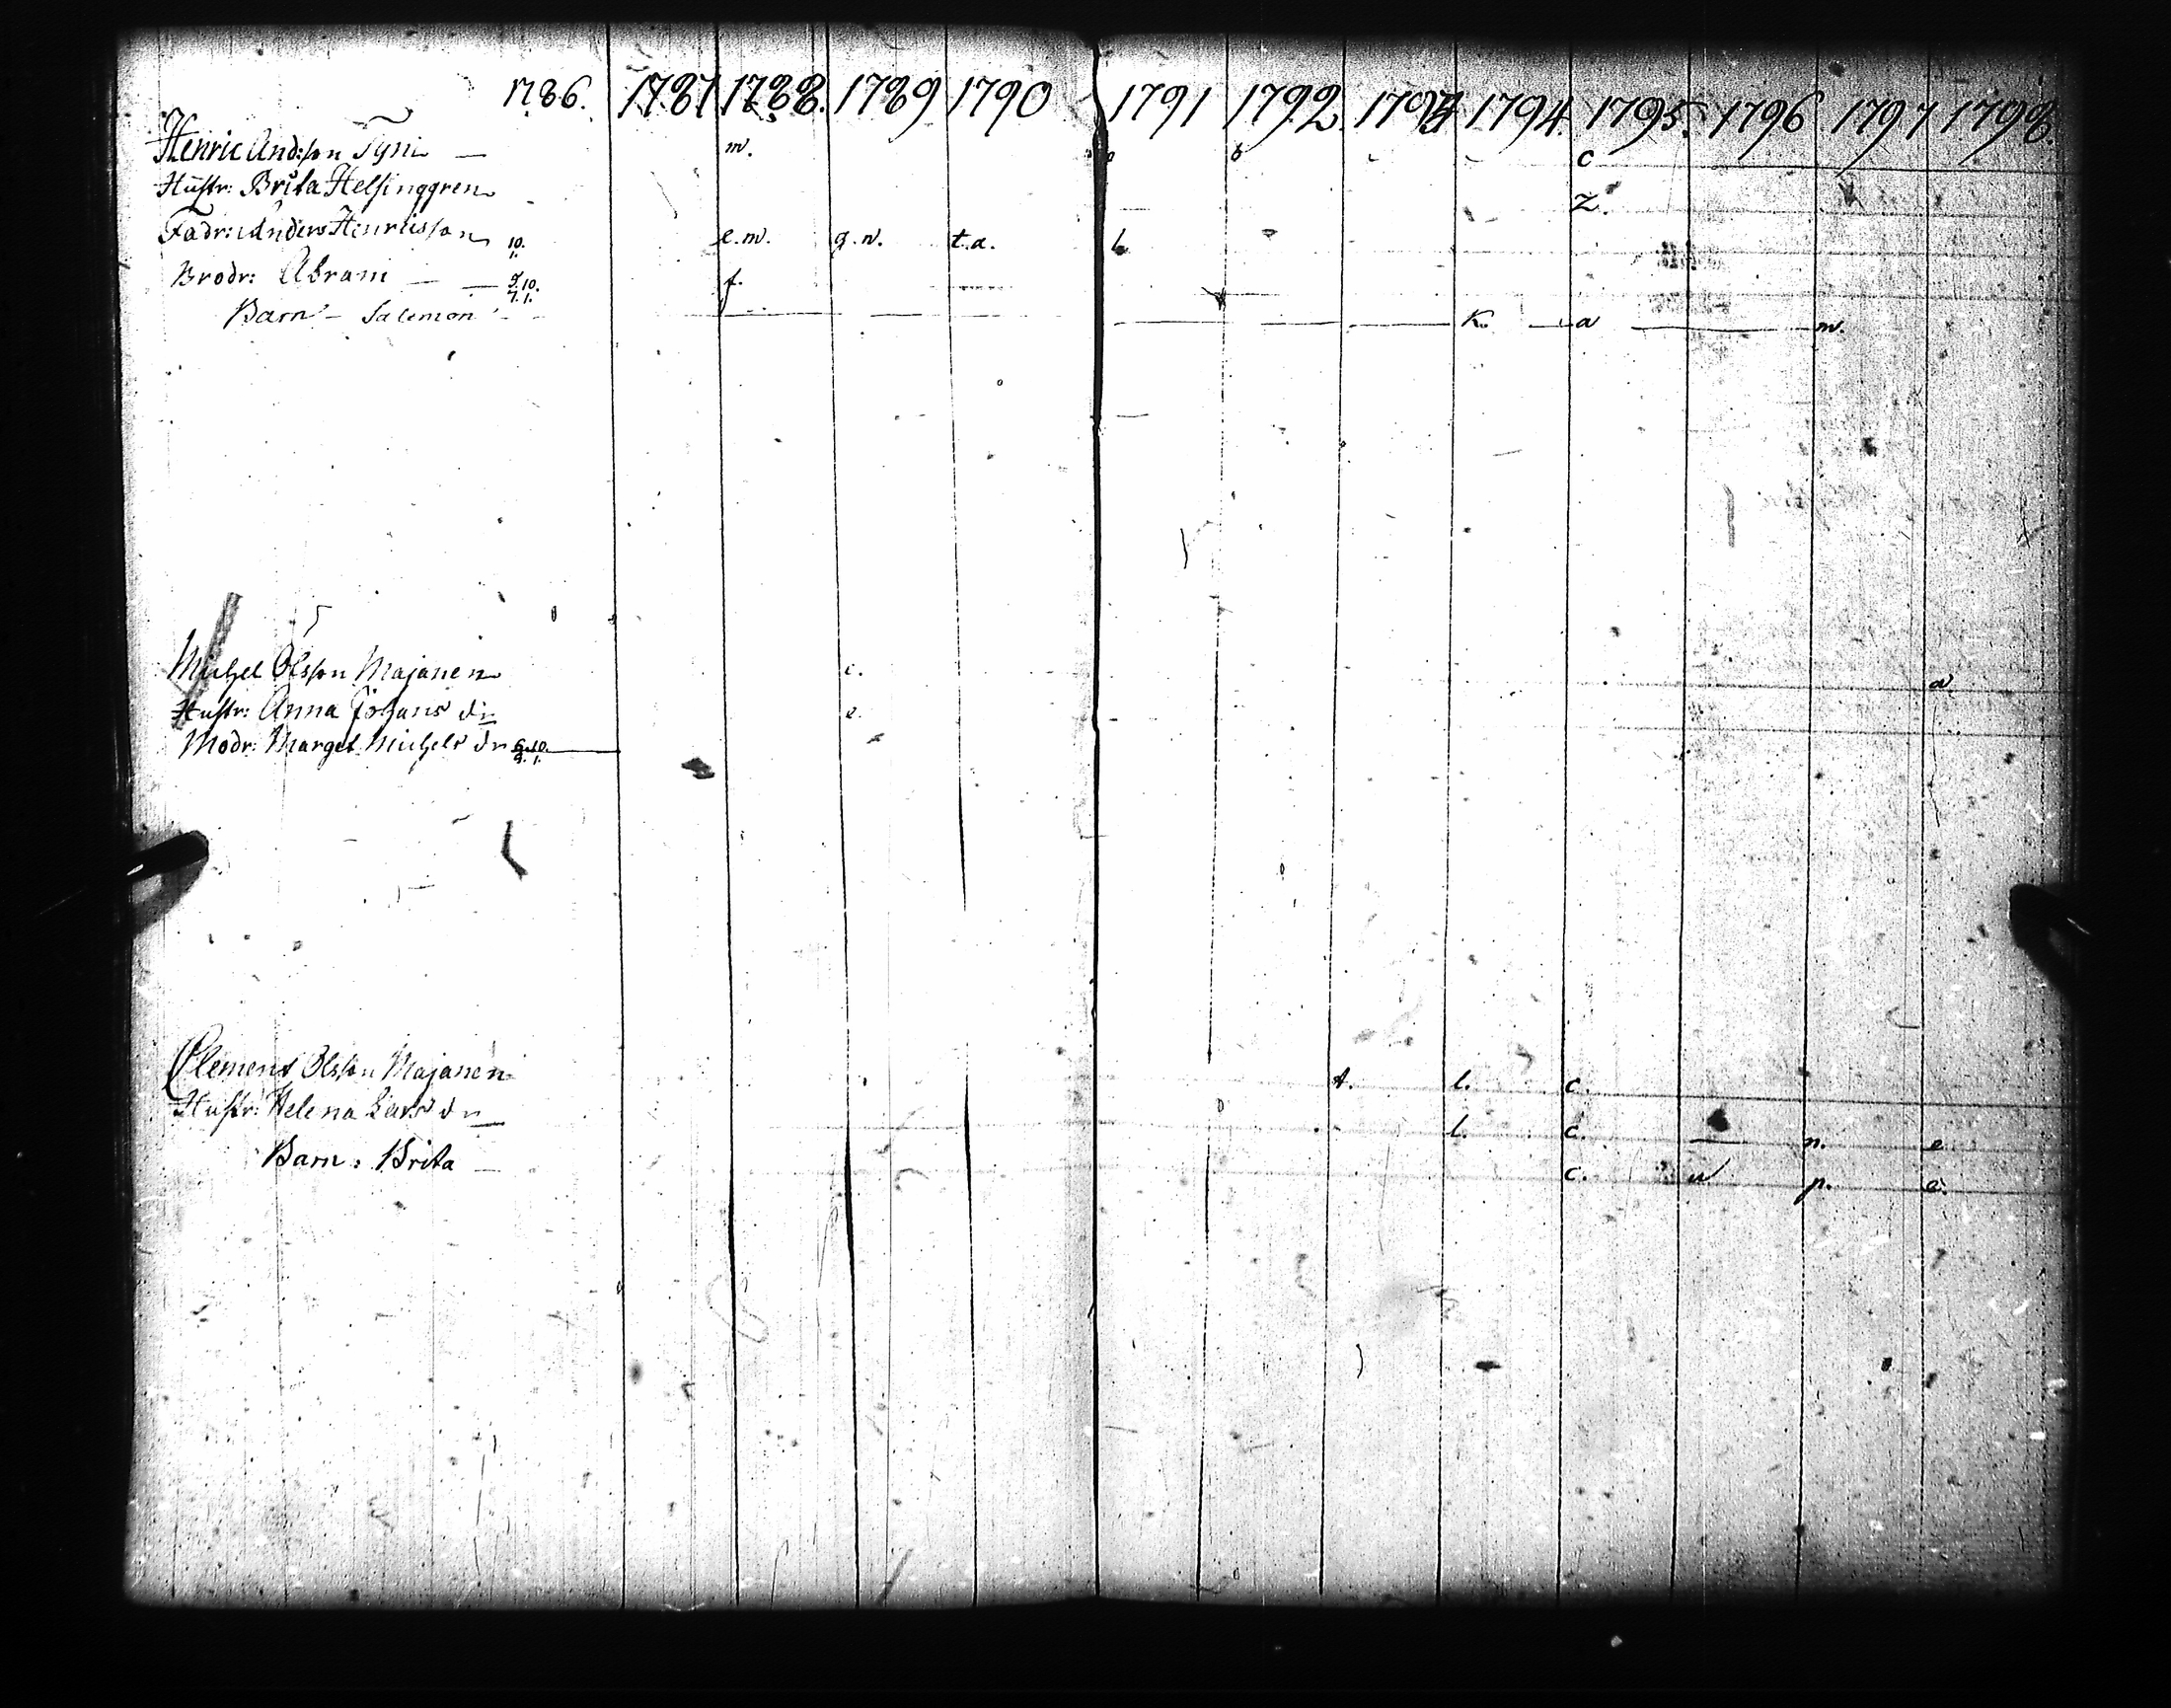 1786. 1787 1788. 1789 1790 1791 1792. 1793 1794. 1795. 1796 1797 1798.
Henric And:sson Tyni — m. b c
Hustr: Brita Helsinggren Z.
Fadr: Anders Henricsson 10. 1. e.m. g.n. t.a. b.
Brodr: Abram — — 9.10. 7.1. f.
Barn — Salemon — K. a m.
Michel Olsson Majanen c. a.
Hustr: Anna Johans dr e.
Modr: Marget Michels dr 6.10. 9.1.
Clemens Olsson Majanen t. l. c.
Hustr: Helena Lars dr l. c. n. e
Barn: Brita — c. u p. e.